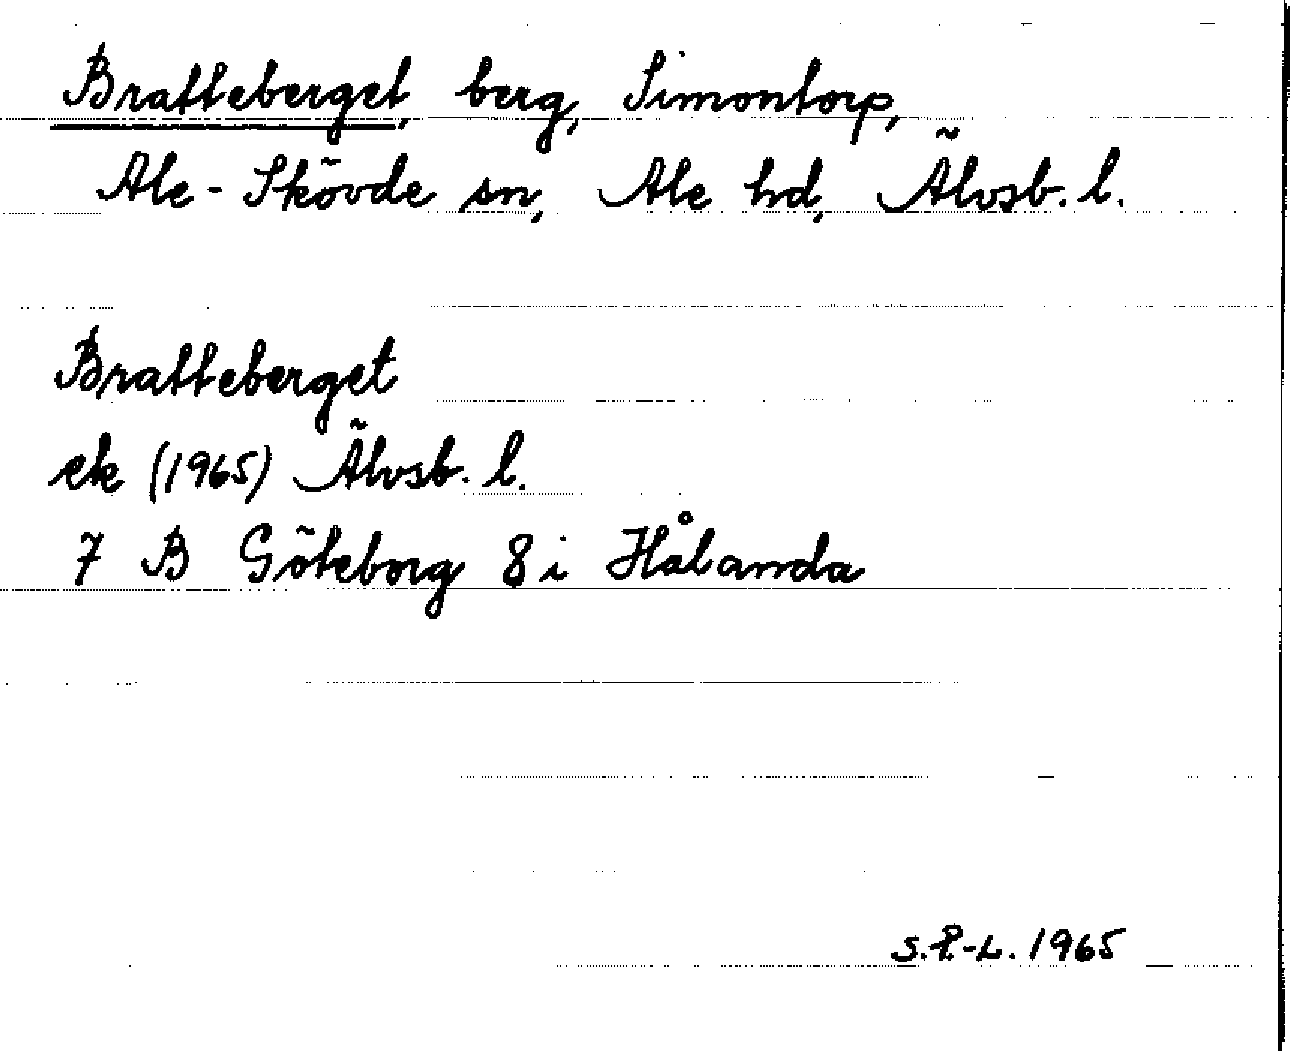 Bratteberget, berg, Simontorp,
Ale-Skövde sn, Ale hd, Älvsb. l.
Bratteberget
ek (1965) Älvsb. l.
7 B Göteborg 8 i Hålanda
S.P.-L. 1965